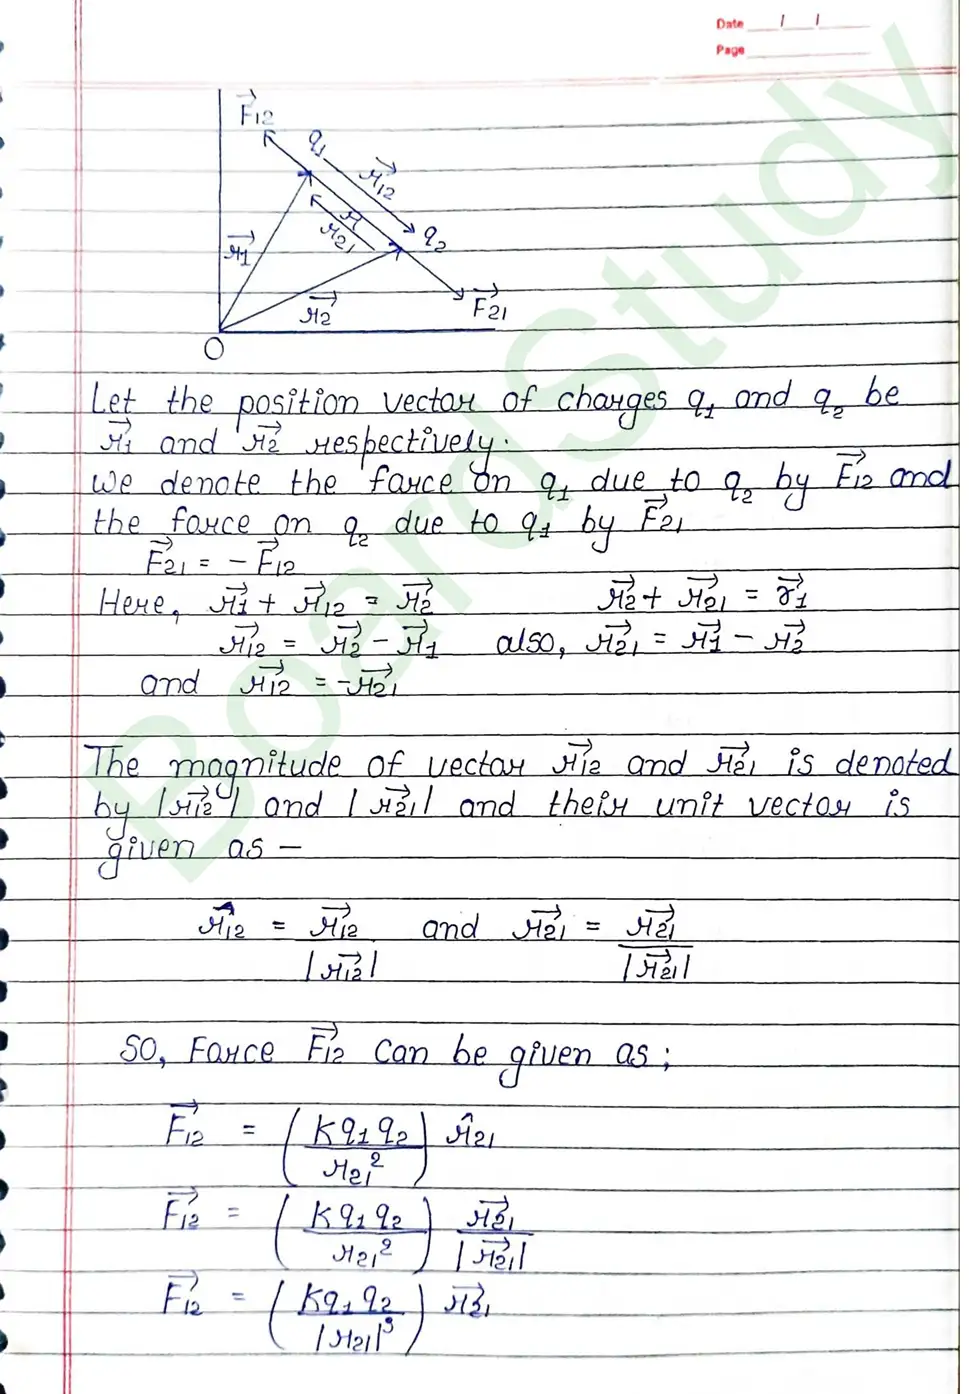 Date / /
Page
F⃗12
q1
r⃗12
r
r21
q2
r⃗1
r⃗2
F⃗21
O
Let the position vector of charges q1 and q2 be
r⃗1 and r⃗2 respectively.
We denote the force on q1 due to q2 by F⃗12 and
the force on q2 due to q1 by F⃗21
F⃗21 = - F⃗12
Here, r⃗1 + r⃗12 = r⃗2 r⃗2 + r⃗21 = r⃗1
r⃗12 = r⃗2 - r⃗1 also, r⃗21 = r⃗1 - r⃗2
and r⃗12 = -r⃗21
The magnitude of vector r⃗12 and r⃗21 is denoted
by |r⃗12| and |r⃗21| and their unit vector is
given as -
r̂12 = r⃗12 / |r⃗12| and r⃗21 = r⃗21 / |r⃗21|
So, Force F⃗12 can be given as;
F⃗12 = (Kq1q2 / r21²) r̂21
F⃗12 = (Kq1q2 / r21²) r⃗21 / |r⃗21|
F⃗12 = (Kq1q2 / |r21|³) r⃗21
BoardStudy